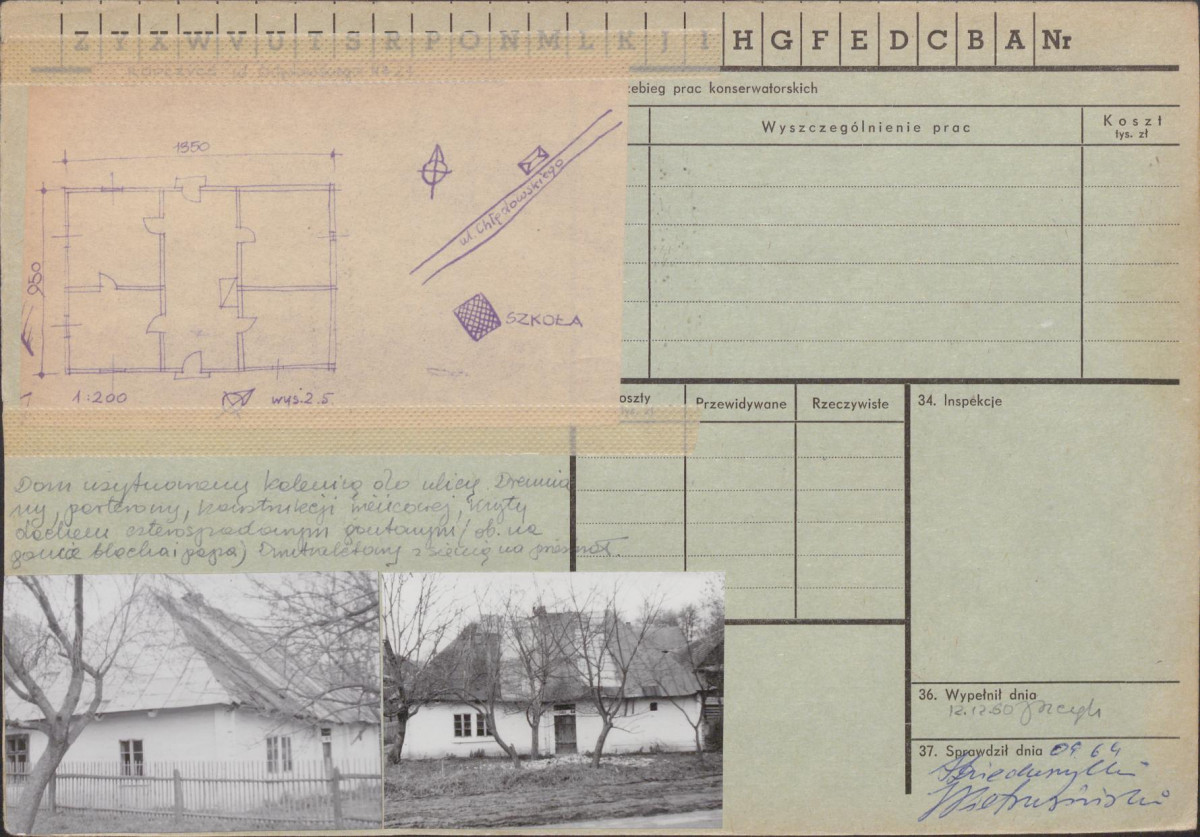 Z Y X W V U T S R P O N M L K J I H G F E D C B A Nr
ebieg prac konserwatorskich
Wyszczególnienie prac
Koszt
tys. zł
1350
950
ul. Chłędowskiego
SZKOŁA
1:200
wys. 2.5.
oszty
Przewidywane
Rzeczywiste
34. Inspekcje
Dom usytuowany kalenicą do ulicy. Drewnia
ny, parterowy, konstrukcji
dachem czterospadowym gontowym / ob. na
goncie blacha i papa) z sienią na
36. Wypełnił dnia
12.12.60
37. Sprawdził dnia 09 64